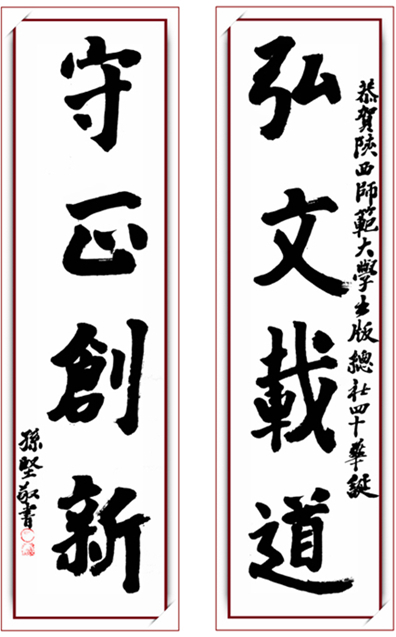 恭賀陝西師範大學出版總社四十華誕
弘文載道
守正創新
孫堅敬書